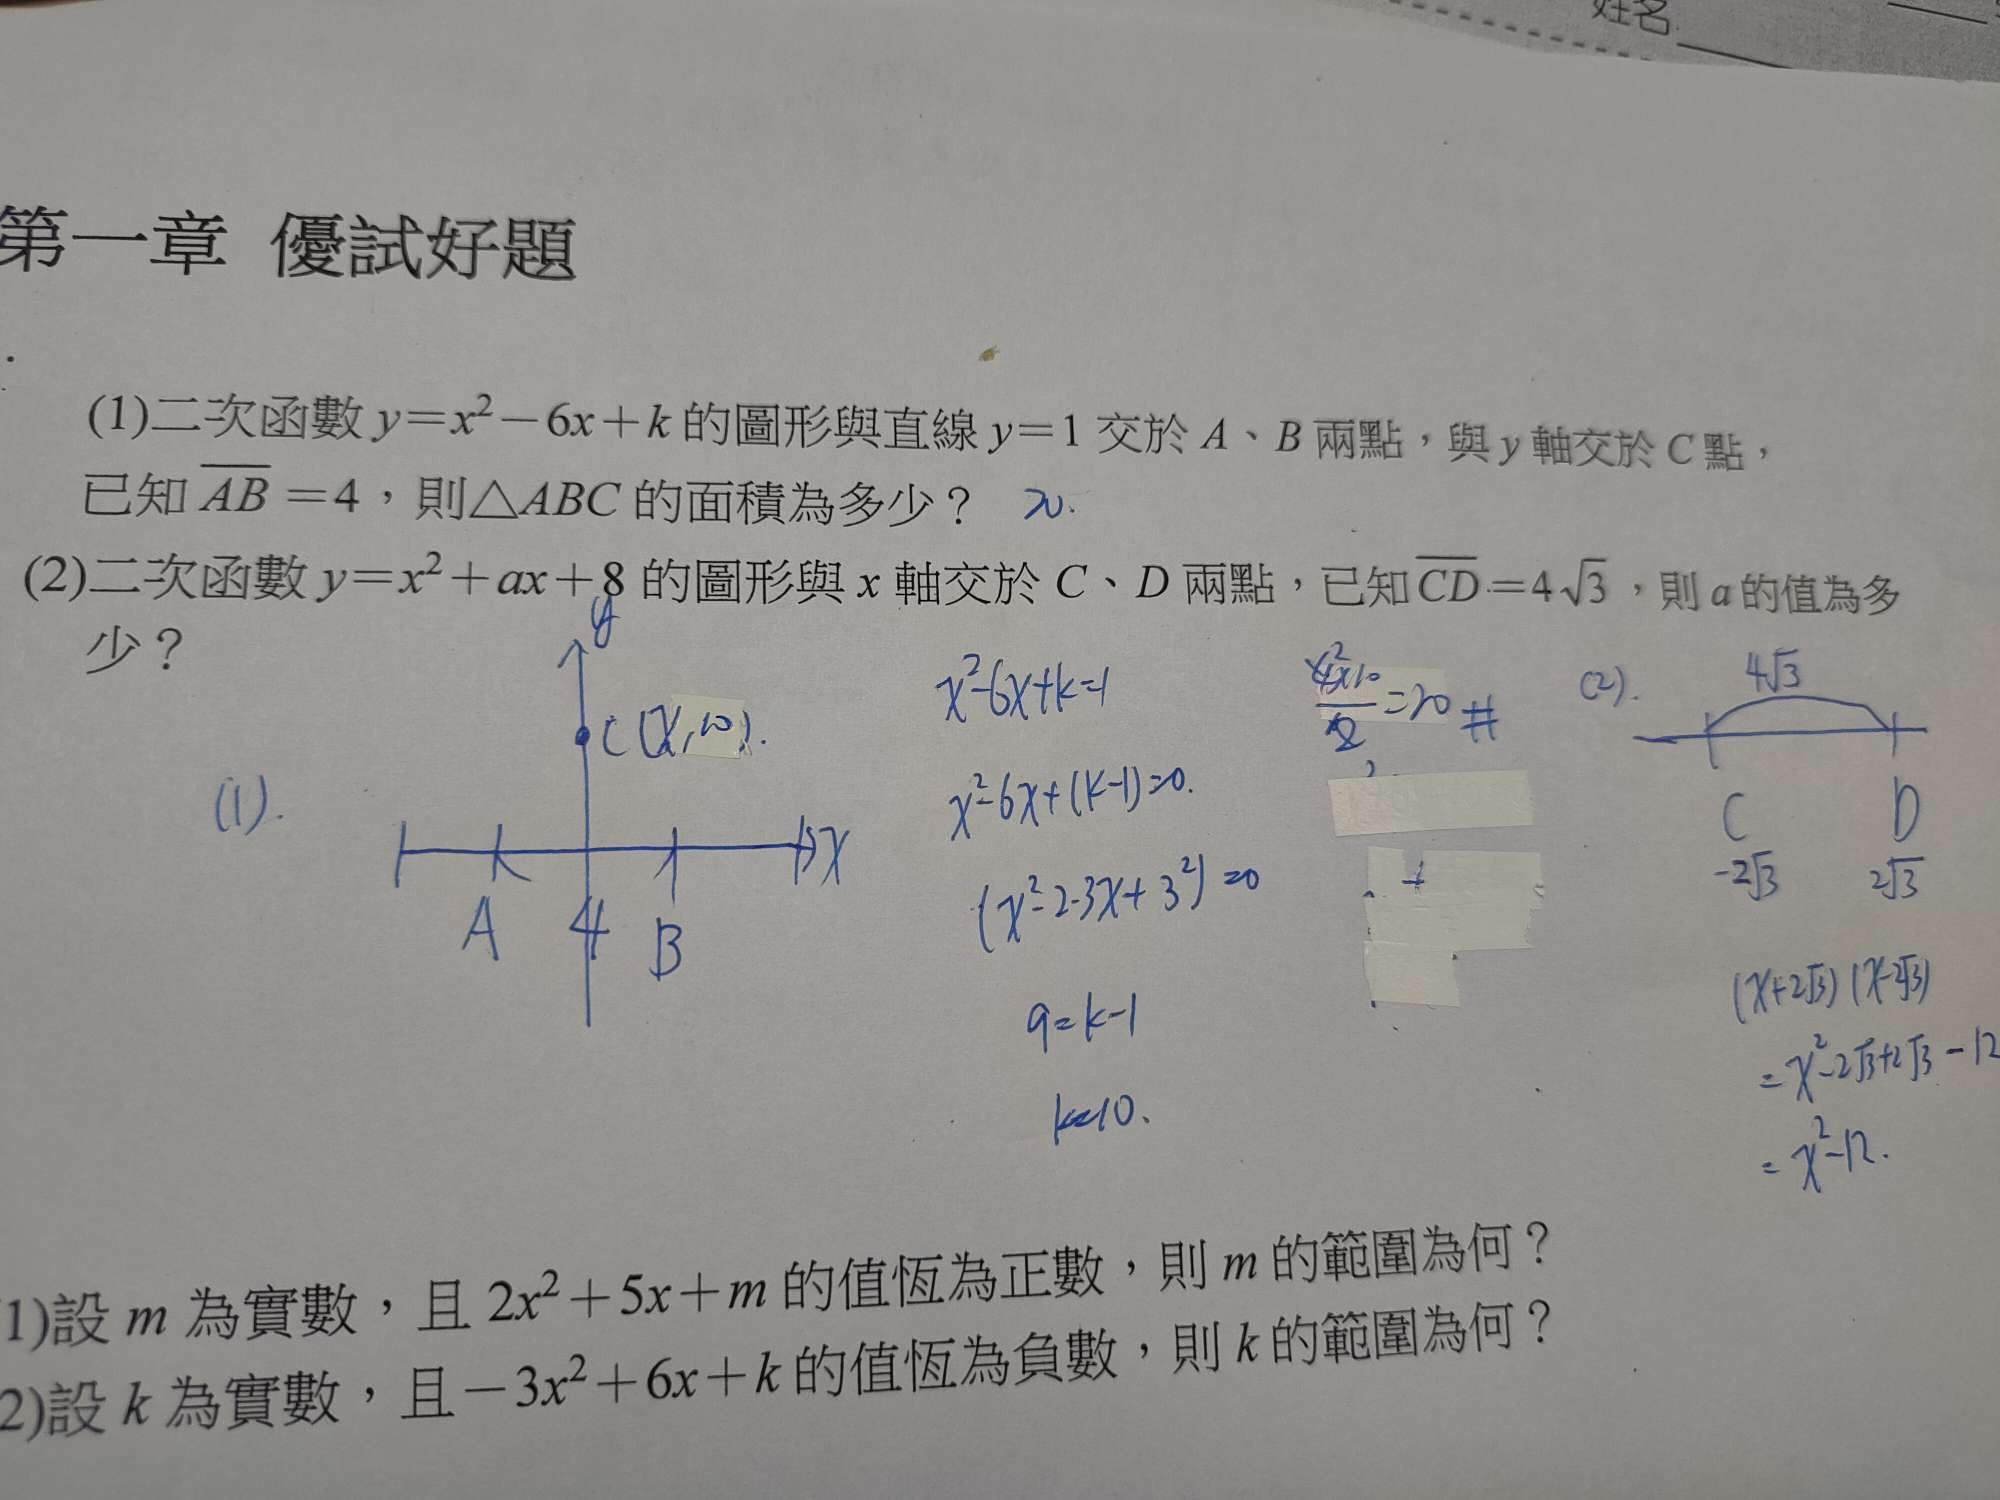 姓名
第一章 優試好題
(1)二次函數 y=x²-6x+k 的圖形與直線 y=1 交於 A、B 兩點，與 y 軸交於 C 點，
已知 AB=4，則△ABC 的面積為多少？ 20.
(2)二次函數 y=x²+ax+8 的圖形與 x 軸交於 C、D 兩點，已知 CD=4√3，則 a 的值為多
少？
(1).
y
C(x,10).
x
A 4 B
x²-6x+k=1
x²-6x+(k-1)=0.
(x²-2·3x+3²)=0
9=k-1
k=10.
4×10/2=20 #
(2).
4√3
C D
-2√3 2√3
(x+2√3)(x-2√3)
=x²-2√3+2√3-12
=x²-12.
1)設 m 為實數，且 2x²+5x+m 的值恆為正數，則 m 的範圍為何？
2)設 k 為實數，且-3x²+6x+k 的值恆為負數，則 k 的範圍為何？